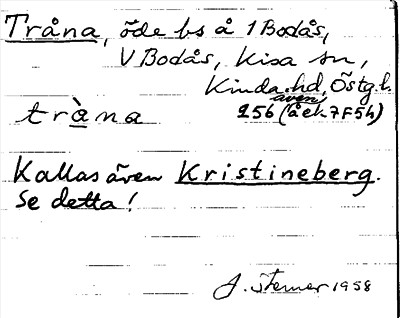 Tråna, öde bs å 1 Bodås,
V Bodås, Kisa sn,
Kinda hd, Östg.l.
även
tràna 256 (å ek 7F5h)
Kallas även Kristineberg.
Se detta!
J. Sterner 1958